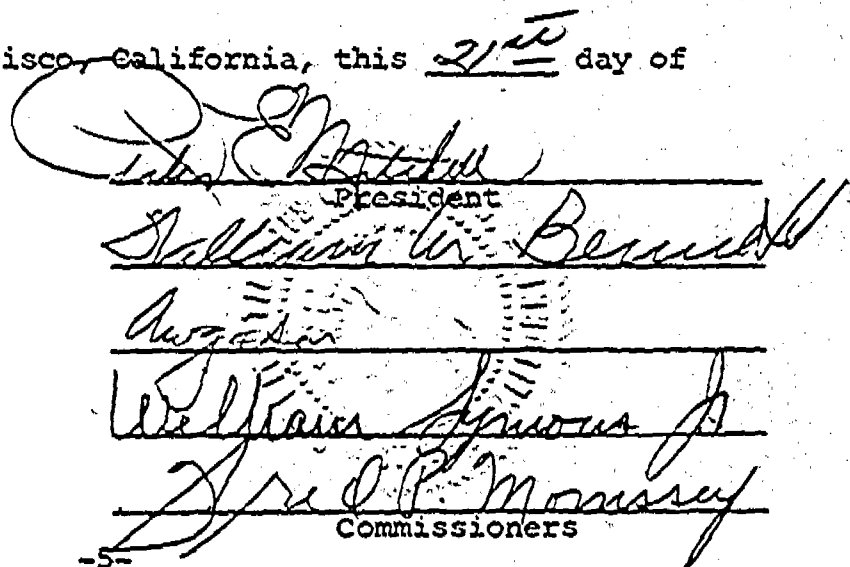 isco, California, this 21st day of
Peter E Mitchell
President
William M. Bennett
William Symons Jr
Fred P. Morrissey
Commissioners
-5-